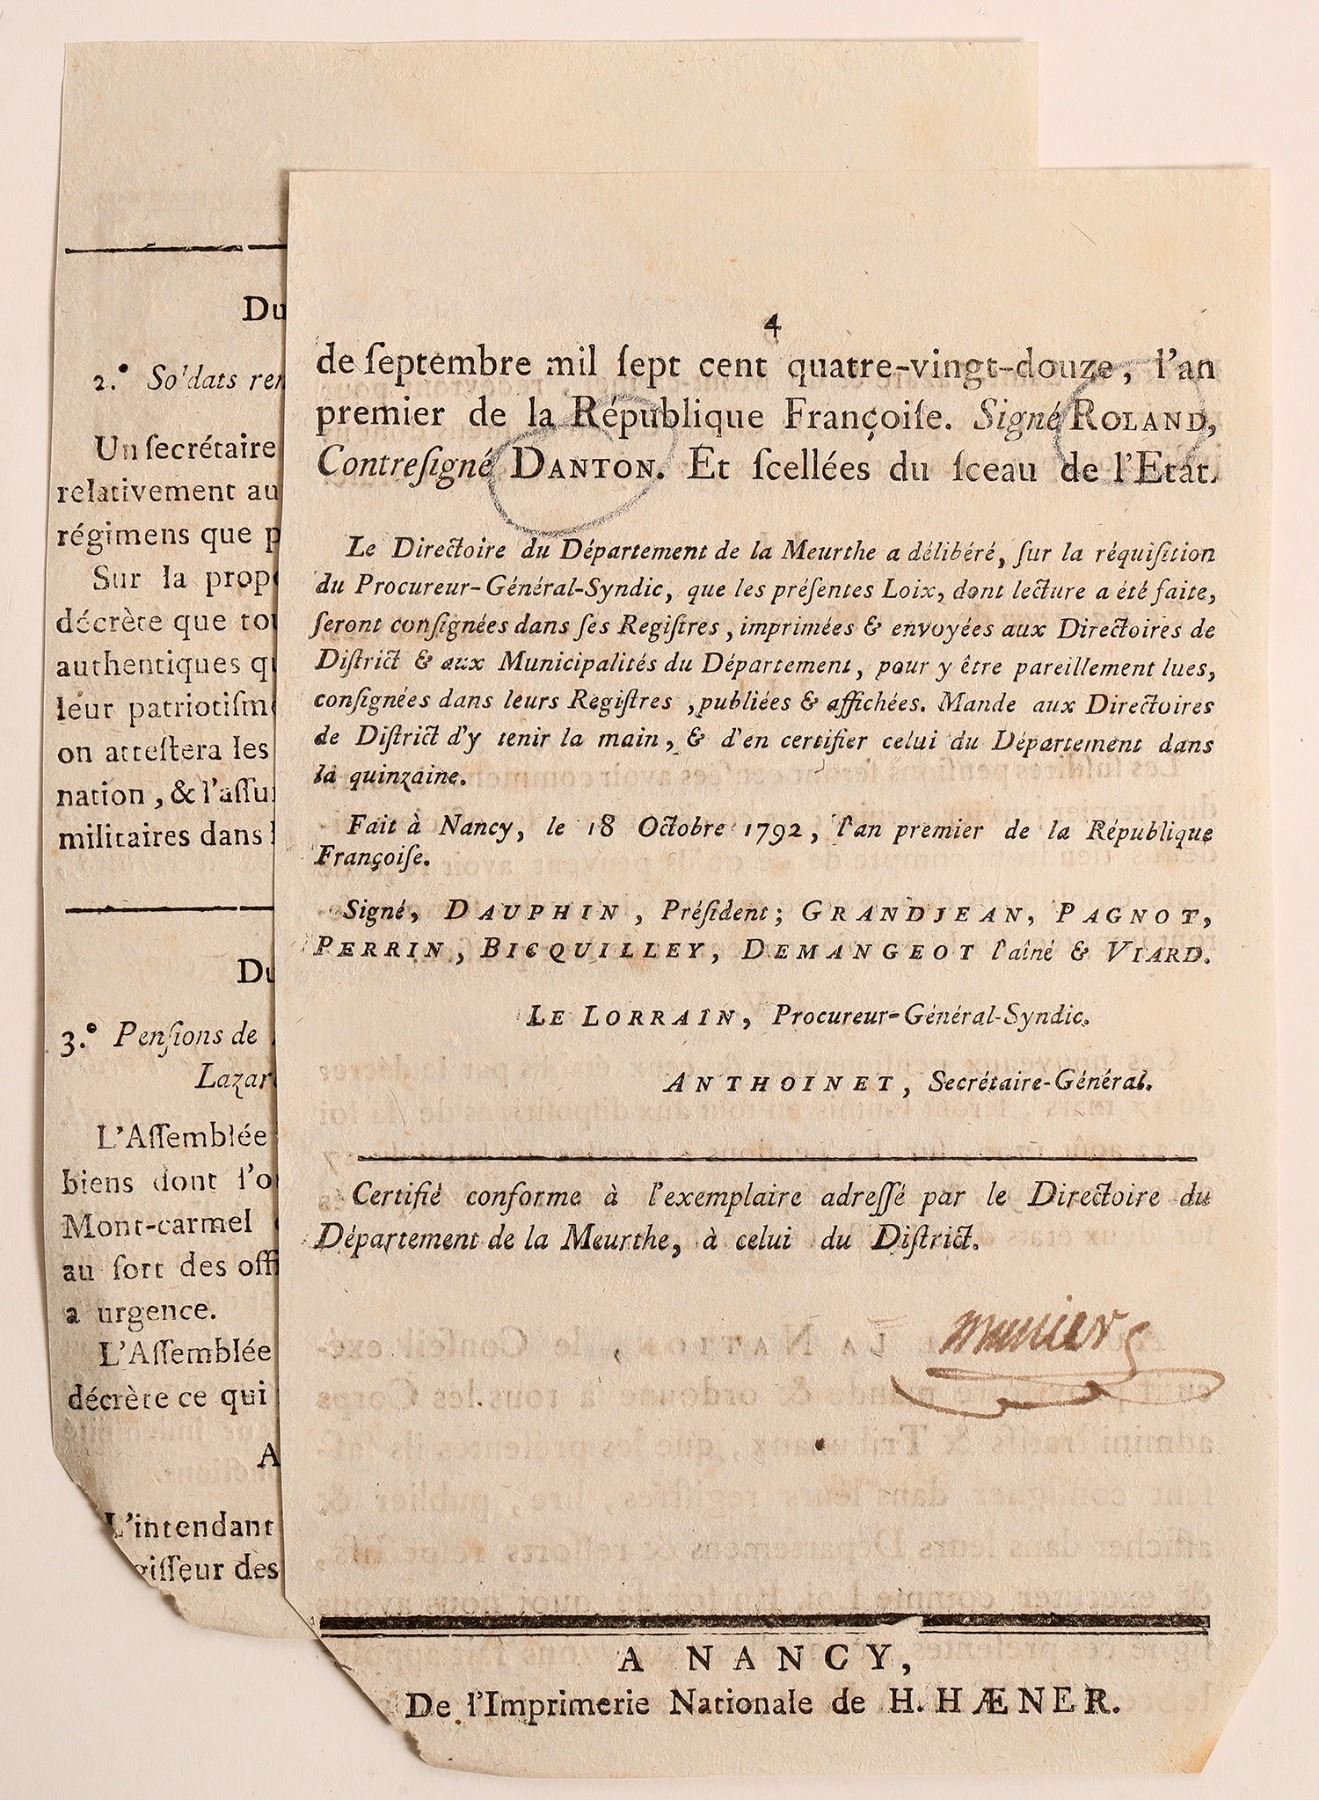 Du
2.° So'dats ren
Un ſecrétaire
relativement au
régimens que p
Sur la prop
décrète que to
authentiques q
leur patriotiſm
on atteſtera les
nation, & l'aſſu
militaires dans
Du
3.° Penſions de
Lazar
L'Aſſemblée
biens dont l'o
Mont-carmel
au ſort des off
a urgence.
L'Aſſemblée
décrète ce qui
A
L'intendant
giſſeur des
4
de ſeptembre mil ſept cent quatre-vingt-douze, l'an
premier de la République Françoiſe. Signé ROLAND,
Contreſigné DANTON. Et ſcellées du ſceau de l'Etat.
Le Directoire du Département de la Meurthe a délibéré, ſur la réquiſition
du Procureur-Général-Syndic, que les préſentes Loix, dont lecture a été faite,
ſeront conſignées dans ſes Regiſtres, imprimées & envoyées aux Directoires de
Diſtrict & aux Municipalités du Département, pour y être pareillement lues,
conſignées dans leurs Regiſtres, publiées & affichées. Mande aux Directoires
de Diſtrict d'y tenir la main, & d'en certifier celui du Département dans
la quinzaine.
Fait à Nancy, le 18 Octobre 1792, l'an premier de la République
Françoiſe.
Signé, DAUPHIN, Préſident; GRANDJEAN, PAGNOT,
PERRIN, BICQUILLEY, DEMANGEOT l'aîné & VIARD.
LE LORRAIN, Procureur-Général-Syndic.
ANTHOINET, Secrétaire-Général.
Certifié conforme à l'exemplaire adreſſé par le Directoire du
Département de la Meurthe, à celui du Diſtrict.
munier
A NANCY,
De l'Imprimerie Nationale de H. HÆNER.